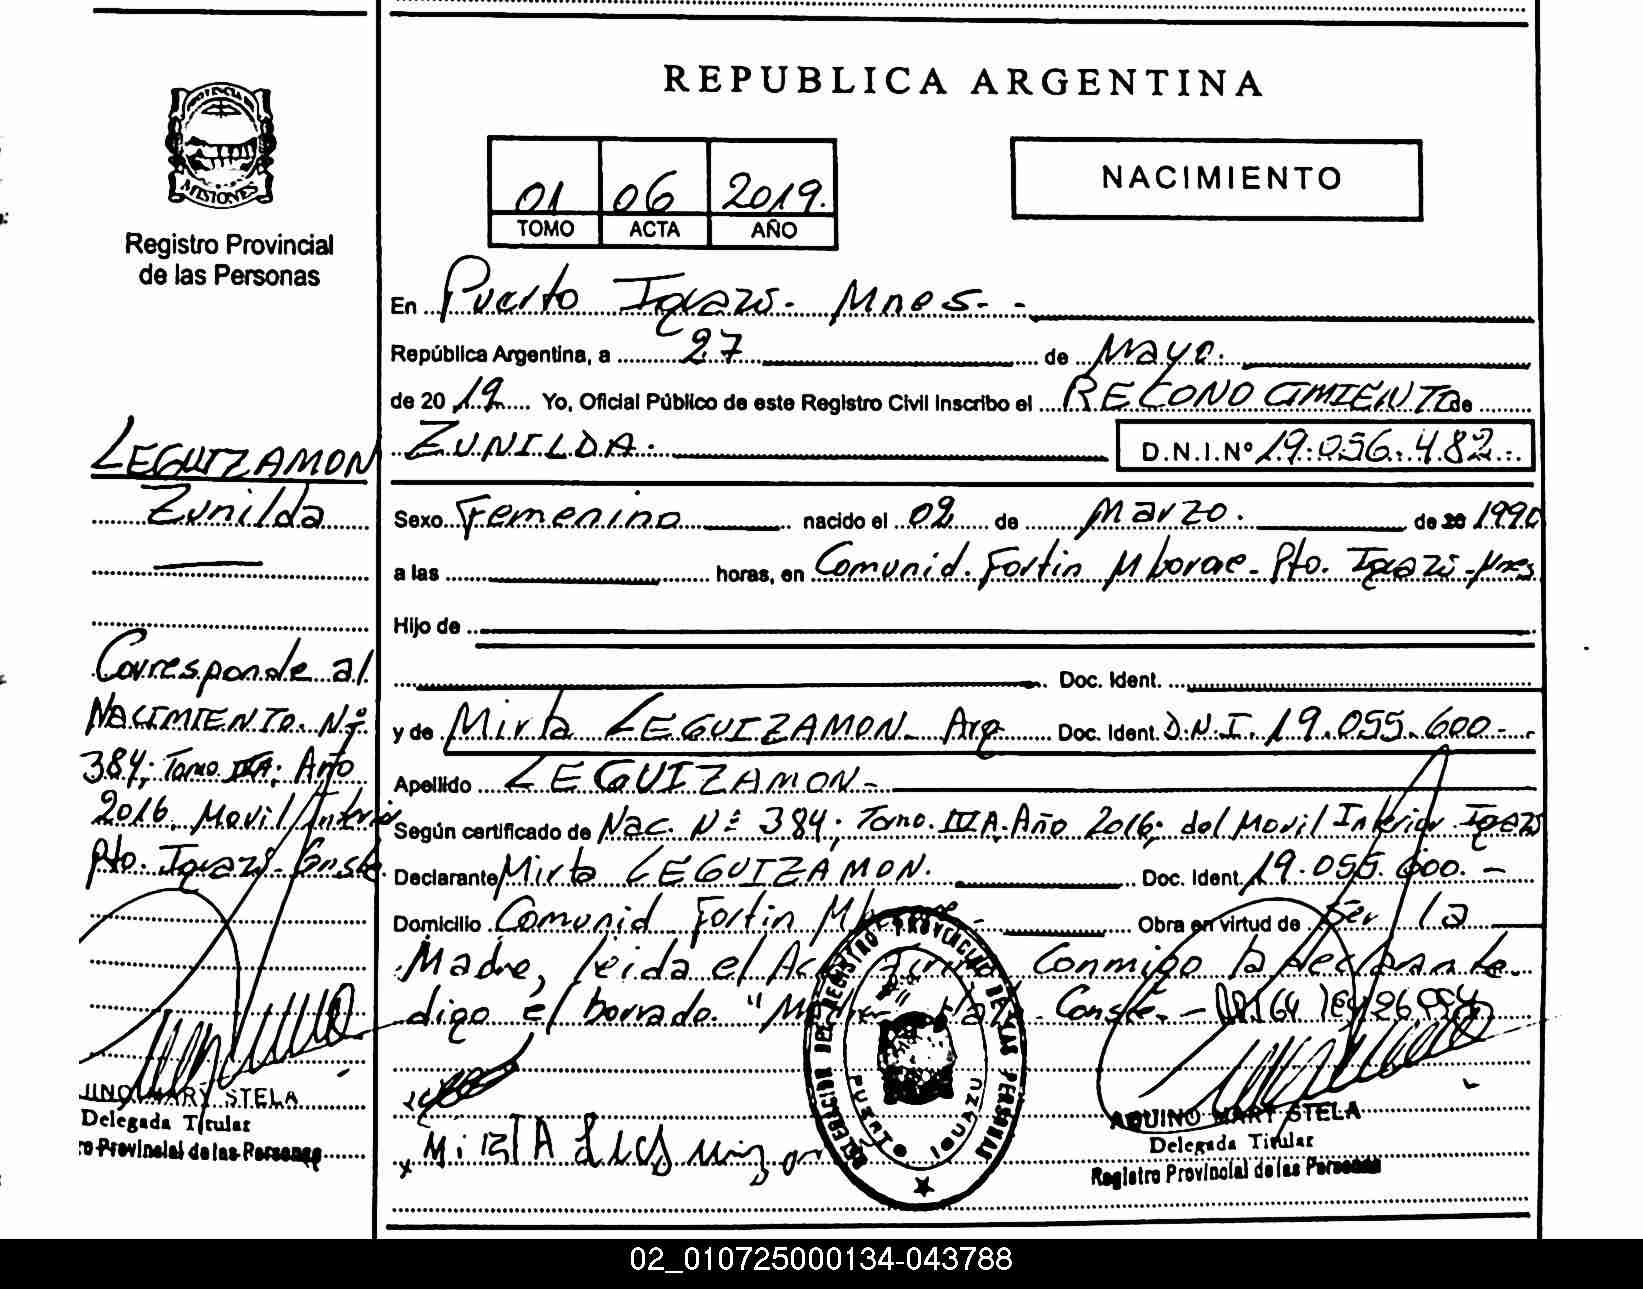 REPUBLICA ARGENTINA
PROVINCIA DE
MISIONES
Registro Provincial
de las Personas
01 06 2019.
TOMO ACTA AÑO
NACIMIENTO
En Puerto Iguazú - Mnes. -
República Argentina, a 27 de Mayo.
de 20 19 Yo, Oficial Público de este Registro Civil Inscribo el RECONOCIMIENTO de
ZUNILDA. D.N.I.Nº 19.056.482.-.
Sexo Femenino nacido el 02 de Marzo. de 20 1990
a las horas, en Comunid. Fortin Mborore - Pto. Iguazú - Mnes
Hijo de
Doc. Ident.
y de Mirta LEGUIZAMON - Arg Doc. Ident. D.N.I. 19.055.600 -
Apellido LEGUIZAMON -
Según certificado de Nac. Nº 384; Tomo. III A. Año 2016; del Movil Interior Iguazú
Declarante Mirta LEGUIZAMON. Doc. Ident. 19.055.600. -
Domicilio Comunid Fortin Obra en virtud de Ser la
Madre, leida el Acta Firma Conmigo la declarante.
digo el borrado. Conste. -
MiRTA
DELEGACION DEL REGISTRO PROVINCIAL DE LAS PERSONAS
PUERTO IGUAZU
AQUINO MARY STELA
Delegada Titular
Registro Provincial de las Personas
LEGUIZAMON
Zunilda
Corresponde al
NACIMIENTO. Nº
384; Tomo III A; Año
2016. Movil Interior
Pto. Iguazú - Conste.
UINO MARY STELA
Delegada Titular
ro Provincial de las Personas
02_010725000134-043788